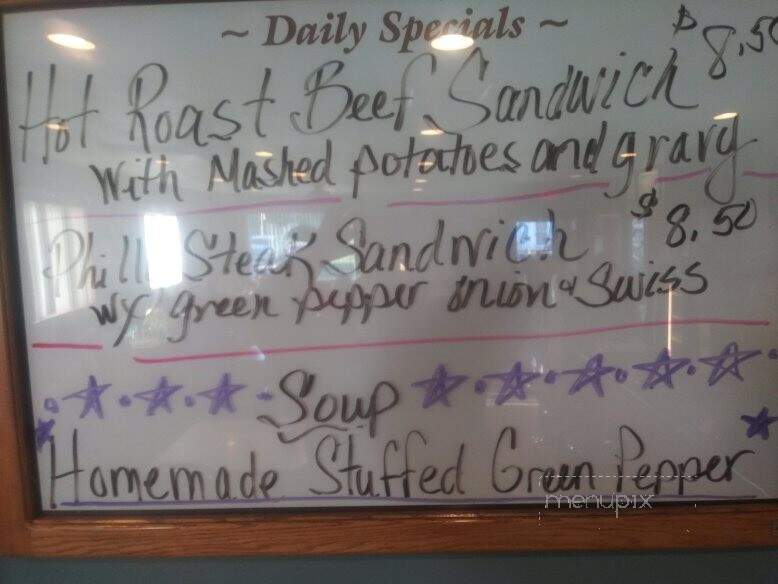 ~ Daily Specials ~
Hot Roast Beef Sandwich $8.50
with Mashed potatoes and gravy
Philly Steak Sandwich $8.50
w/ green pepper onion & Swiss
Soup
Homemade Stuffed Green Pepper
menupix